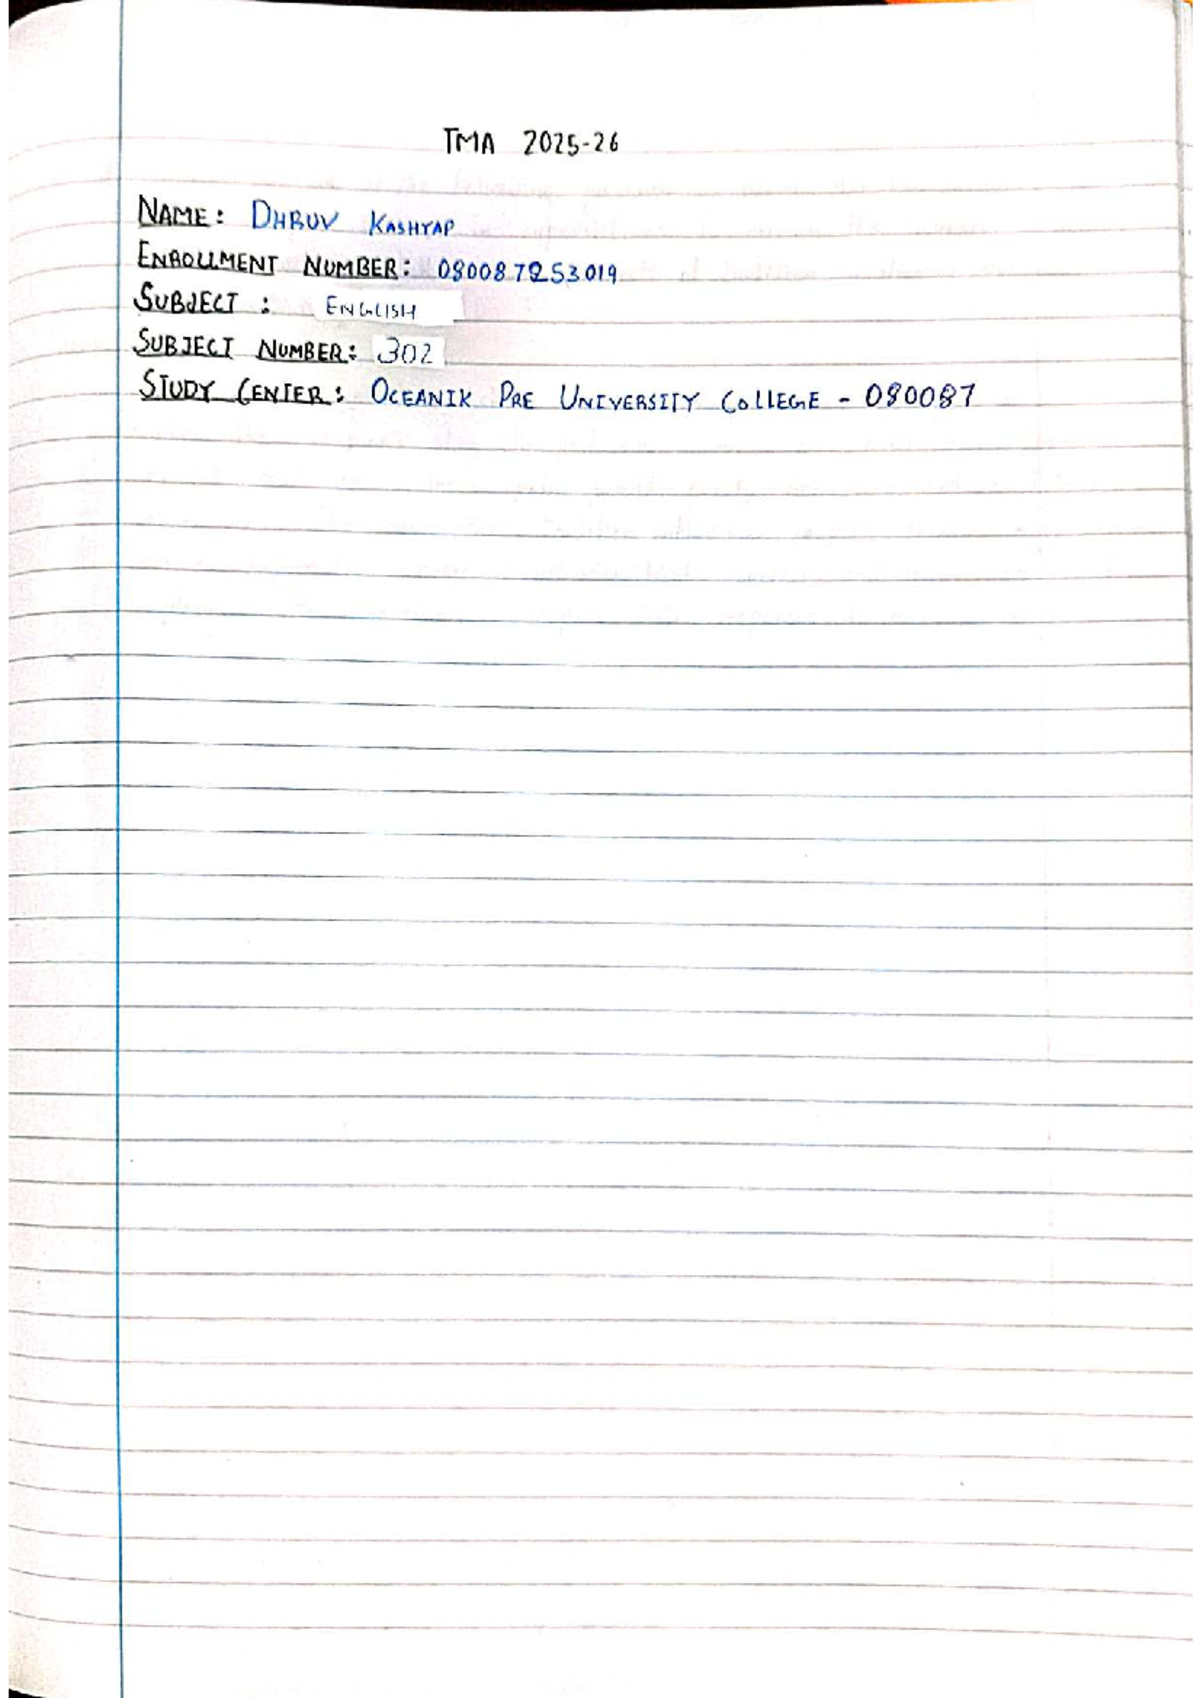 TMA 2025-26
NAME: DHRUV KASHYAP
ENROLLMENT NUMBER: 080087253019
SUBJECT: ENGLISH
SUBJECT NUMBER: 302
STUDY CENTER: OCEANIK PRE UNIVERSITY COLLEGE - 080087